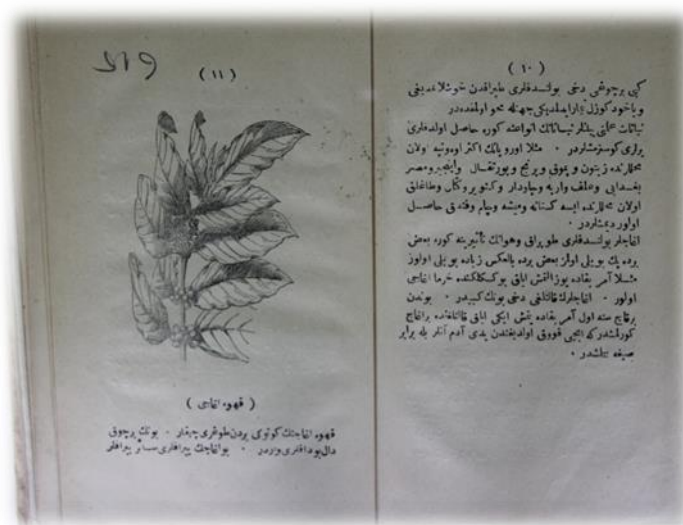 ( ١٠ )
كبی برچوغی دخی بولندقلری طپراقدن خوشلانمدیغی
و یاخود كوزل تیمار ایدلمدیكی جهتله محو اولمقده‌در
نباتات علمنی بیلنلر نباتاتك انواعنه كوره حاصل اولدقلری
یرلری كوسترمشلردر ٠ مثلا اوروپانك اكثر اووه‌سیه اولان
محللرنده زیتون و پموق و برنج و پورتقال وانجیر ومصر
بغدایی وعلف وارپه وچاودار وكنویر وكتان وطاغلق
اولان محللرنده ایسه كستانه ومیشه وچام وفندق حاصل
اولور دیمشلردر ٠
اغاجلر بولندقلری طوپراق وهوانك تأثیرینه كوره بعض
یرده پك بویلی اولز بعض یرده بالعكس زیاده بویلی اولور
مثلا آمریقاده یوز التمش ایاق یوكسكلكنده خرما اغاجی
اولور ٠ اغاجلرك قالكلغی دخی بونك كبیدر ٠ بوندن
برقاچ سنه اول آمریقاده یتمش ایكی ایاق قالكلغنده براغاج
كورلمشدركه ایچی قووق اولدیغندن یدی آدم آتلر یله برابر
صیغه بیلمشدر ٠
( ١١ )
( قهوه اغاجی )
قهوه اغاجنك كوتوكی یردن طوغری چیقار ٠ بونك برچوق
دال بوداقلری واردر ٠ بو اغاجك یپراقلری سائر یپراقلر